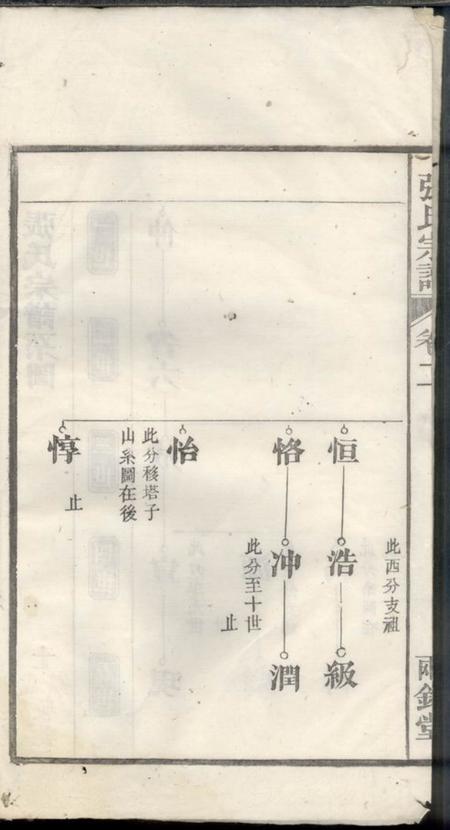 張氏宗譜
卷二
兩銘堂
此西分支祖
恒
浩
級
恪
冲
潤
此分至十世
止
怡
此分移塔子
山系圖在後
惇
止